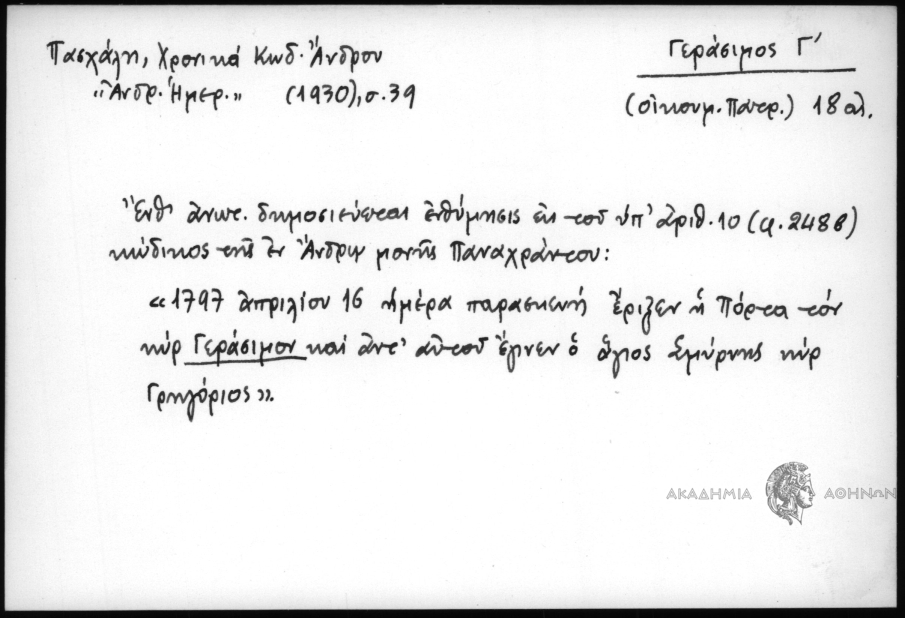 Πασχάλη, Χρονικά Κωδ. Ἄνδρου
Γεράσιμος Γ΄
"Ἀνδρ. Ἡμερ." (1930), σ. 39
(οἰκουμ. Πατρ.) 18 αἰ.
Ἔνθ' ἀνωτ. δημοσιεύεται ἐνθύμησις ἐκ τοῦ ὑπ' ἀριθ. 10 (φ. 248β)
κώδικος τῆς ἐν Ἄνδρῳ μονῆς Παναχράντου:
«1797 ἀπριλίου 16 ἡμέρα παρασκευή ἔριξεν ἡ Πόρτα τόν
κύρ Γεράσιμον καί ἀντ' αὐτοῦ ἔγινεν ὁ ἅγιος Σμύρνης κύρ
Γρηγόριος».
ΑΚΑΔΗΜΙΑ ΑΘΗΝΩΝ